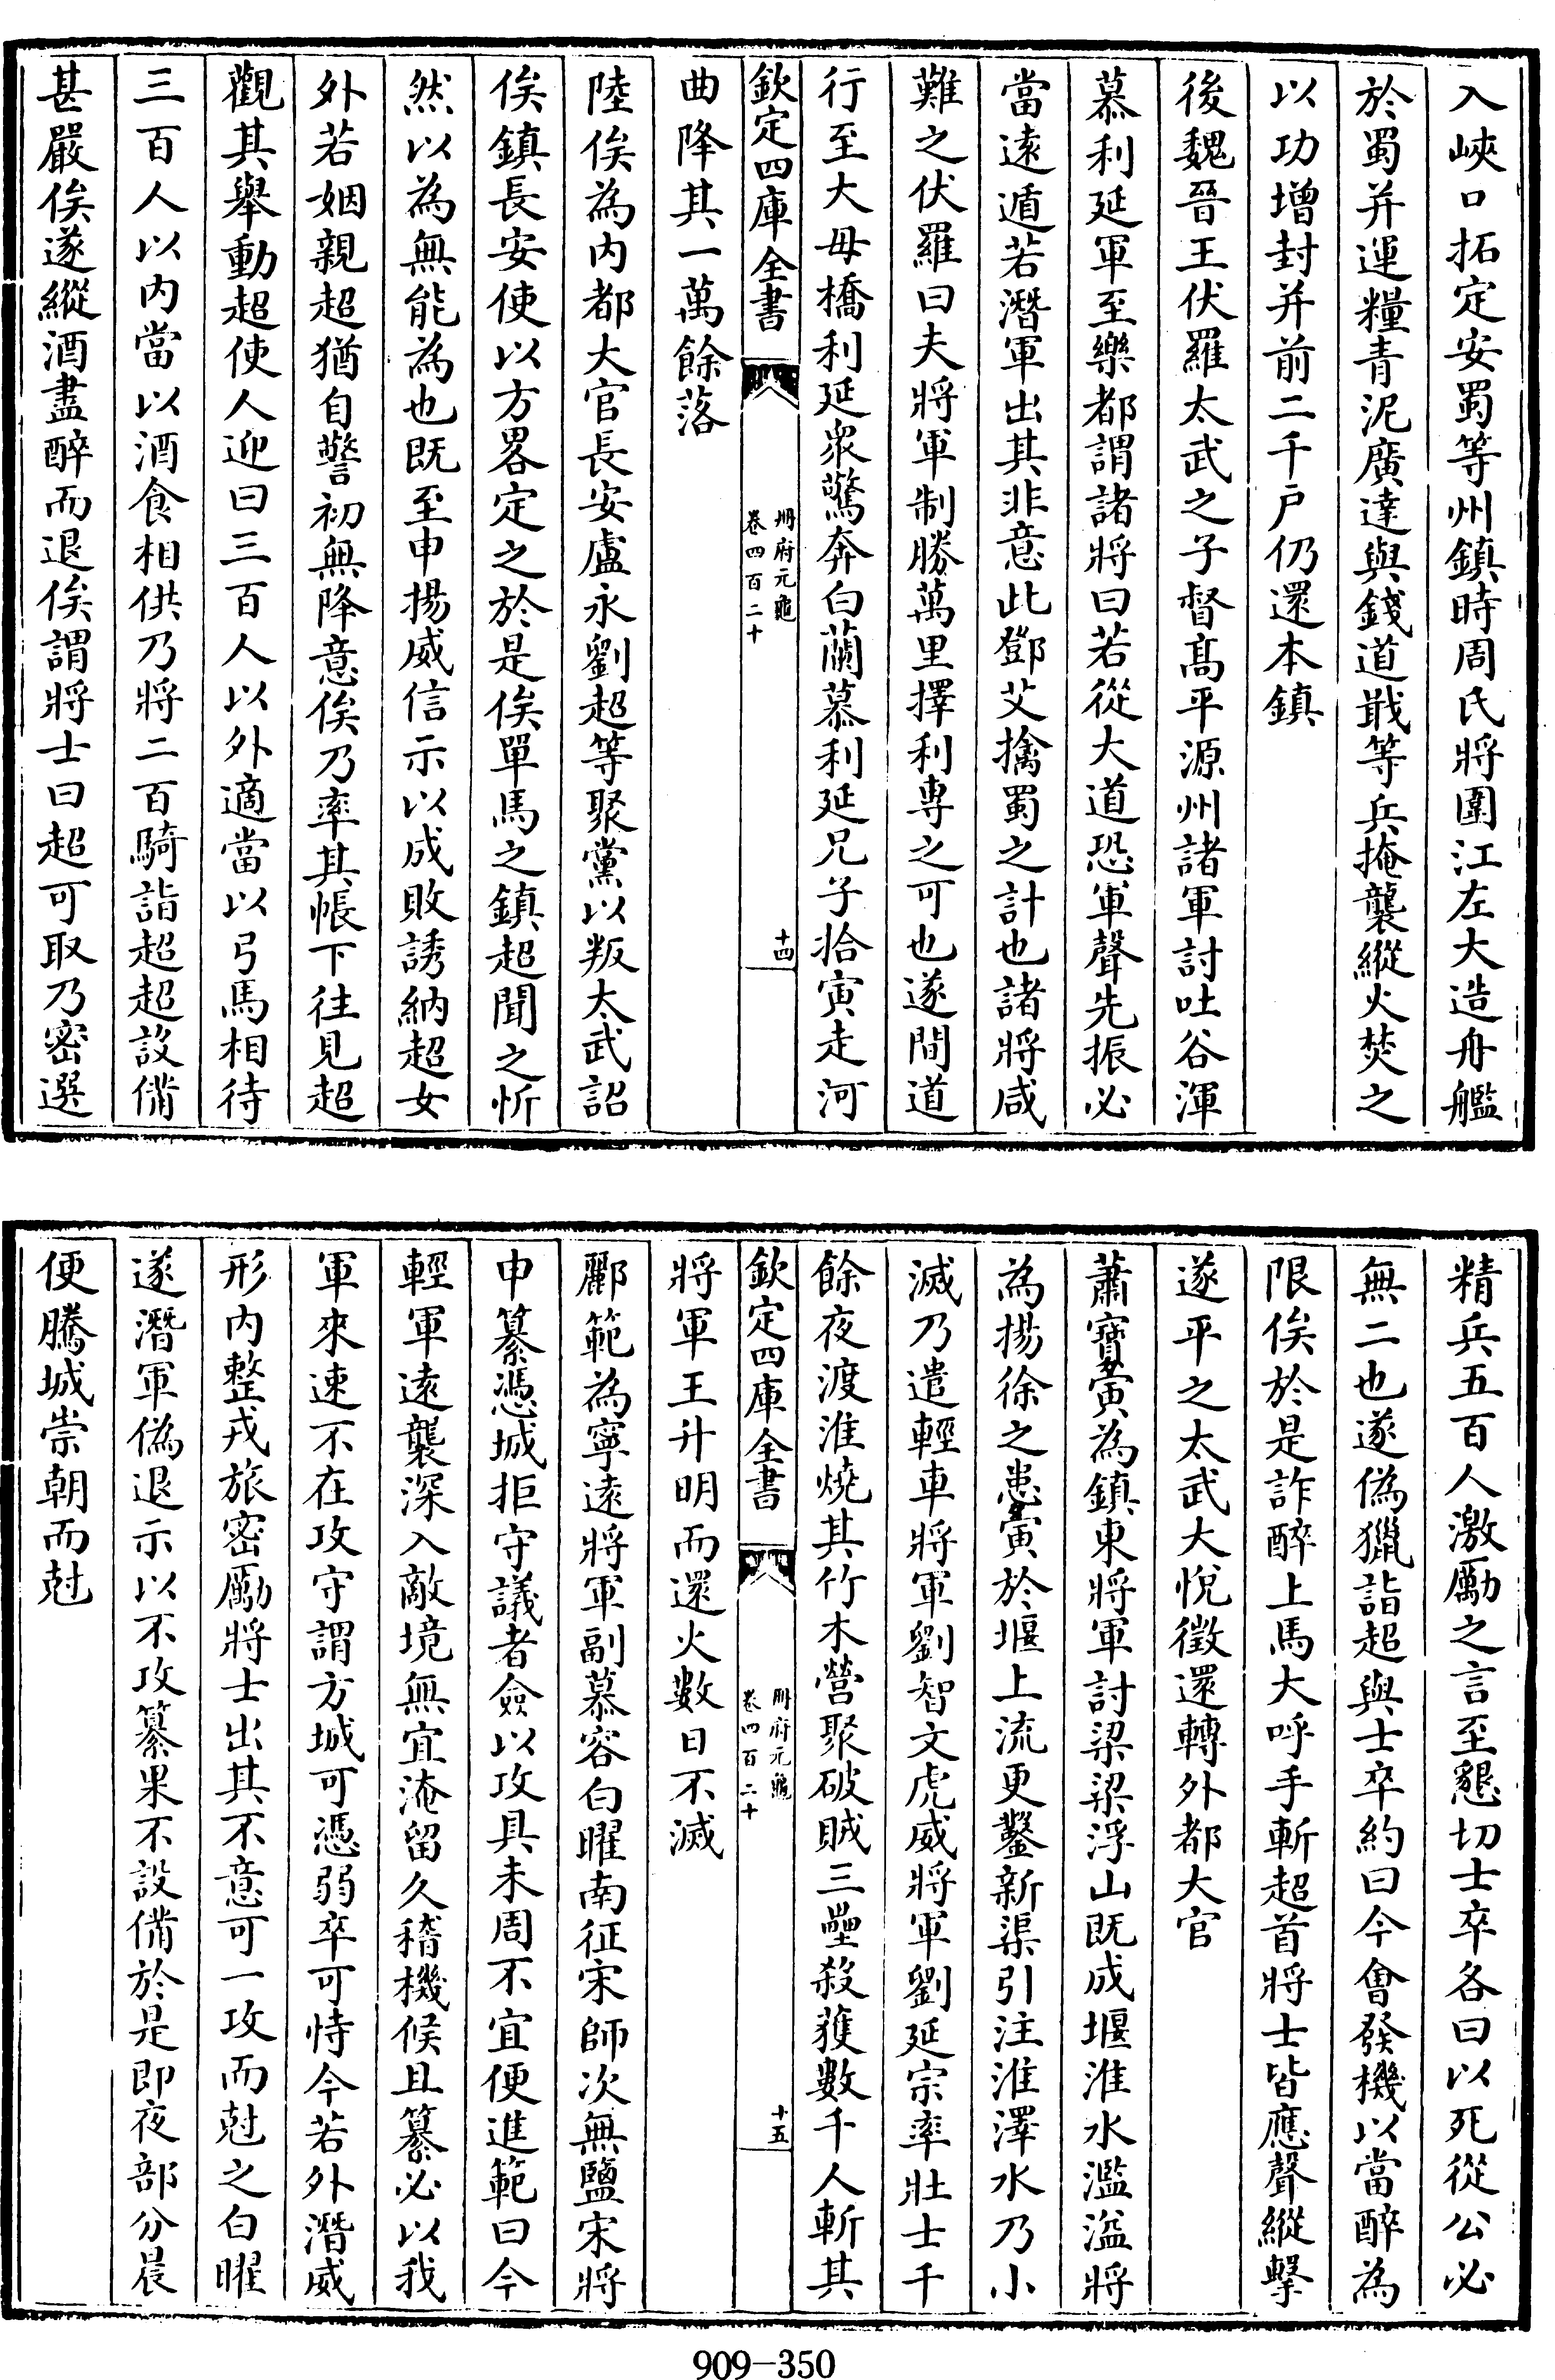 入峽口拓定安蜀等州鎮時周氏將圍江左大造舟艦
於蜀并運糧青泥廣達與錢道戢等兵掩襲縱火焚之
以功增封并前二千戸仍還本鎮
後魏晉王伏羅太武之子督髙平源州諸軍討吐谷渾
慕利延軍至樂都謂諸將曰若從大道恐軍聲先振必
當逺遁若潛軍出其非意此鄧艾擒蜀之計也諸將咸
難之伏羅曰夫將軍制勝萬里擇利専之可也遂間道
行至大毋橋利延衆驚奔白蘭慕利延兄子拾寅走河
欽定四庫全書
冊府元龜
卷四百二十
十四
曲降其一萬餘落
陸俟為内都大官長安盧永劉超等聚黨以叛太武詔
俟鎮長安使以方畧定之於是俟單馬之鎮超聞之忻
然以為無能為也既至申揚威信示以成敗誘納超女
外若姻親超猶自警初無降意俟乃率其帳下往見超
觀其舉動超使人迎曰三百人以外適當以弓馬相待
三百人以内當以酒食相供乃將二百騎詣超超設備
甚嚴俟遂縱酒盡醉而退俟謂將士曰超可取乃密選
精兵五百人激勵之言至懇切士卒各曰以死從公必
無二也遂偽獵詣超與士卒約曰今會發機以當醉為
限俟於是詐醉上馬大呼手斬超首將士皆應聲縱擊
遂平之太武大悅徴還轉外都大官
蕭寶夤為鎮東將軍討梁梁浮山既成堰淮水濫溢將
為揚徐之患夤於堰上流更鑿新渠引注淮澤水乃小
滅乃遣輕車將軍劉智文虎威將軍劉延宗率壯士千
餘夜渡淮燒其竹木營聚破賊三壘殺獲數千人斬其
欽定四庫全書
冊府元龜
卷四百二十
十五
將軍王升明而還火數日不滅
酈範為寧逺將軍副慕容白曜南征宋師次無鹽宋將
申纂憑城拒守議者僉以攻具未周不宜便進範曰今
輕軍逺襲深入敵境無宜淹留久稽機候且纂必以我
軍來速不在攻守謂方城可憑弱卒可恃今若外潛威
形内整戎旅密勵將士出其不意可一攻而尅之白曜
遂潛軍偽退示以不攻纂果不設備於是即夜部分晨
便騰城崇朝而尅
909-350